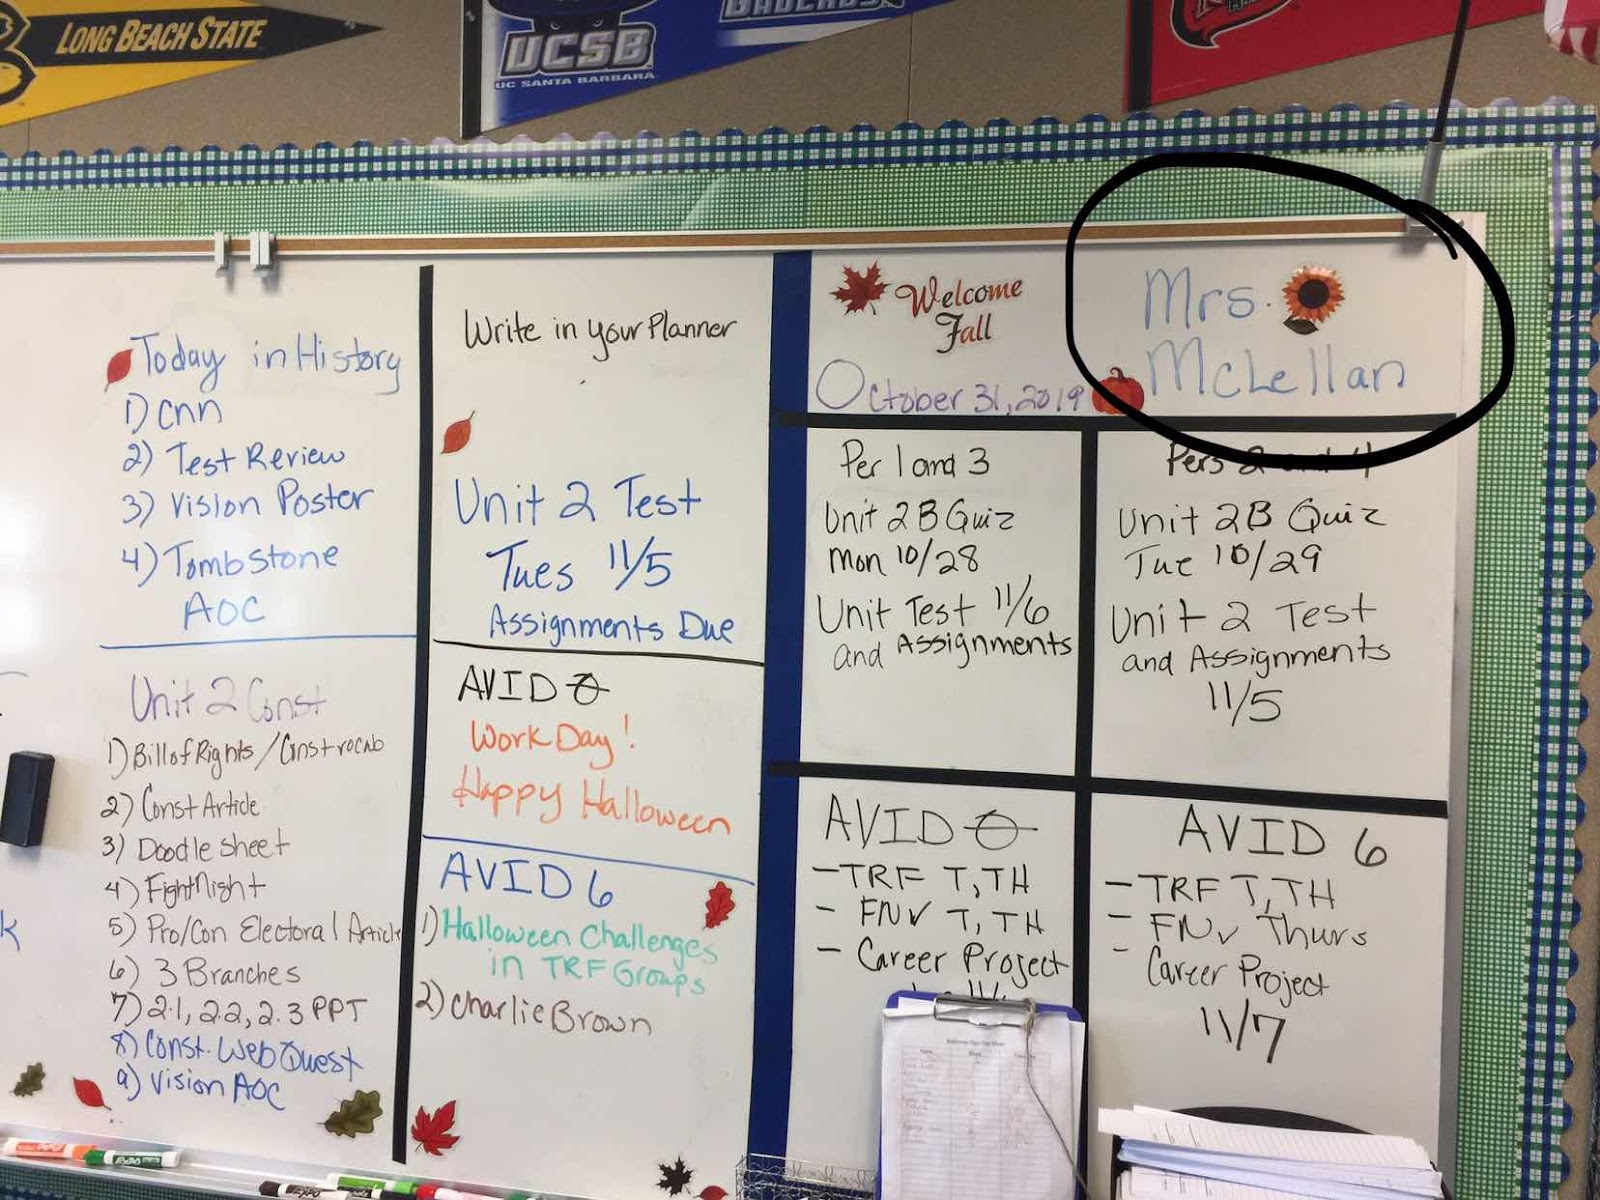 LONG BEACH STATE
UCSB
UC SANTA BARBARA
Today in History
1) CNN
2) Test Review
3) Vision Poster
4) Tombstone
AOC
Unit 2 Const
1) Bill of Rights/Const vocab
2) Const Article
3) Doodle Sheet
4) Fight Night
5) Pro/Con Electoral Article
6) 3 Branches
7) 2.1, 2.2, 2.3 PPT
8) Const. Web Quest
9) Vision AOC
Write in your Planner
Unit 2 Test
Tues 11/5
Assignments Due
AVID 0
Work Day!
Happy Halloween
AVID 6
1) Halloween Challenges
in TRF Groups
2) Charlie Brown
Welcome
Fall
October 31, 2019
Mrs.
McLellan
Per 1 and 3
Unit 2B Quiz
Mon 10/28
Unit Test 11/6
and Assignments
Pers 2 and 4
Unit 2B Quiz
Tue 10/29
Unit 2 Test
and Assignments
11/5
AVID 0
- TRF T, TH
- FNV T, TH
- Career Project
AVID 6
- TRF T, TH
- FNV Thurs
- Career Project
11/7
EXPO